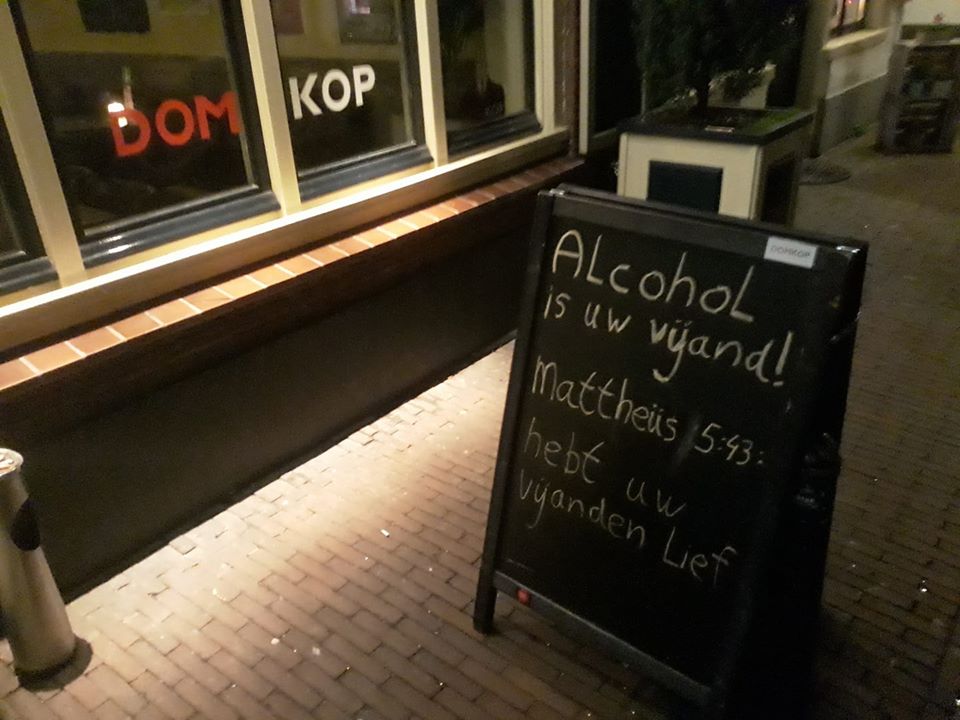 DOM KOP
DOMKOP
ALcohoL
is uw vÿand!
Mattheüs 5:43:
hebt uw
vÿanden Lief